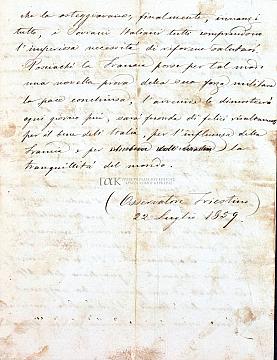 che la osteggiavano; finalmente, innanzi
tutto, i Sovrani Italiani tutti comprendono
l'imperiosa necessità di riforme salutari.
Poiachè la Francia porse per tal modo
una novella prova della sua forza militare
la pace conchiusa, l'avvenire lo dimostrerà
ogni giorno più, sarà feconda di felici risultamenti
per il bene dell'Italia, per l'influenza della
Francia e per la
tranquillità del mondo.
(Osservatore Triestino)
22 Luglio 1859.
ΙΑΚ